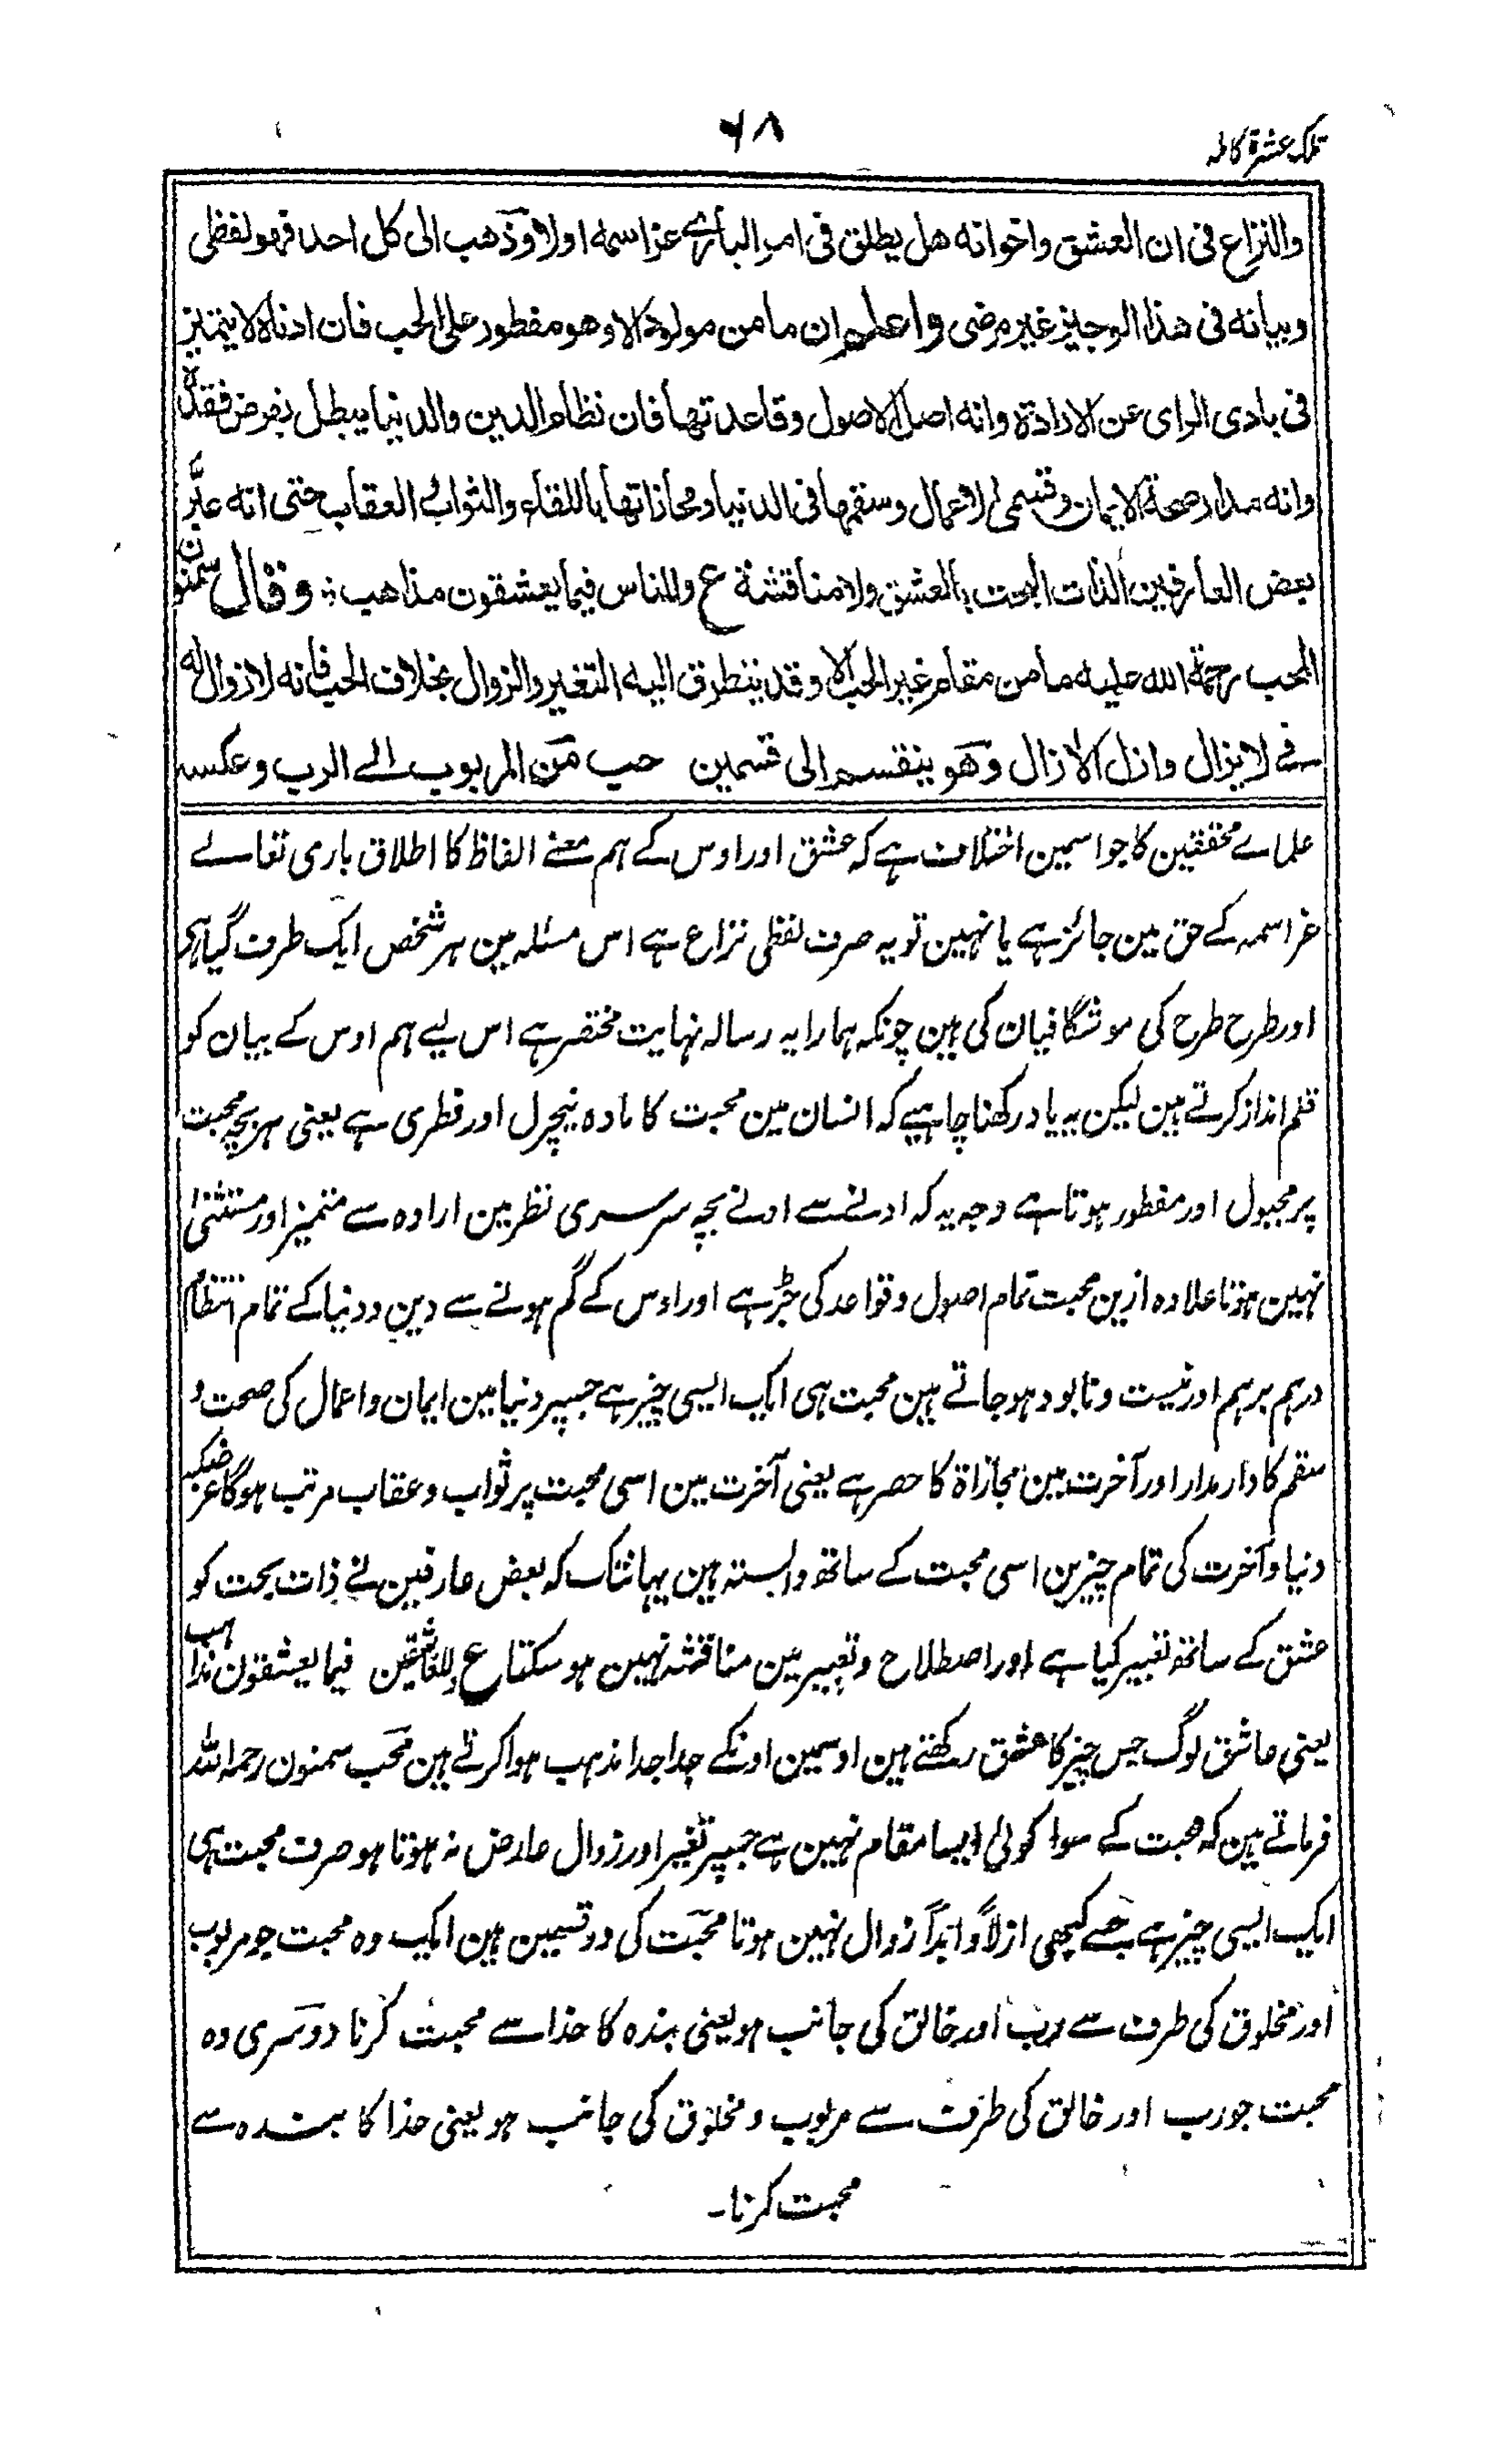 تلک عشرۃ کاملہ
۶۸
والنزاع فی ان العشق واخوانه هل یطلق فی امر الباری عز اسمه اولا وذهب الی کل احد فهو لفظی
وبیانه فی هذا الوجیز غیر مرضی واعلم ان ما من مولود الا وهو مفطور علی الحب فان ادناه لا یتمیز
فی بادی الرای عن الارادة وانه اصل الاصول وقاعدتها فان نظام الدین والدنیا یبطل بفرض فقده
وانه مدار صحة الایمان و الاعمال وسقمها فی الدنیا ومجازاتها باللقاء والثواب والعقاب حتی انه عبّر
بعض العارفین الذات البحت بالعشق ولا مناقشة ع وللناس فیما یعشقون مذاهب ؛ وقال سمنون
المحب رحمة الله علیه ما من مقام غیر الحب الا وقد یتطرق الیه التغیر والزوال بخلاف الحب فانه لا زوال له
فے لا یزال وازل الآزال وهو ینقسم الی قسمین حب من المربوب الے الرب وعکسه
علماے محققین کا جو اسمین اختلاف ہے کہ عشق اور اوس کے ہم معنے الفاظ کا اطلاق باری تعالے
عز اسمہ کے حق مین جائز ہے یا نہین تو یہ صرف لفظی نزاع ہے اس مسئلہ مین ہر شخص ایک طرف گیا ہی
اور طرح طرح کی موشگافیان کی ہین چونکہ ہمارا یہ رسالہ نہایت مختصر ہے اس لیے ہم اوس کے بیان کو
قلم انداز کرتے ہین لیکن یہ یاد رکھنا چاہیے کہ انسان مین محبت کا مادہ نیچرل اور فطری ہے یعنی ہر بچہ محبت
پر مجبول اور مفطور ہوتا ہے وجہ یہ کہ ادنے سے ادنے بچہ سرسری نظر مین ارادہ سے متمیز اور مستثنیٰ
نہین ہوتا علاوہ ازین محبت تمام اصول و قواعد کی جڑ ہے اور اوس کے گم ہونے سے دین و دنیا کے تمام انتظام
درہم برہم اور نیست و نابود ہو جاتے ہین محبت ہی ایک ایسی چیز ہے جسپر دنیا مین ایمان و اعمال کی صحت و
سقم کا دار مدار اور آخرت مین مجازاۃ کا حصر ہے یعنی آخرت مین اسی محبت پر ثواب و عقاب مرتب ہوگا غرضکہ
دنیا و آخرت کی تمام چیزین اسی محبت کے ساتھ وابستہ ہین یہانتک کہ بعض عارفین نے ذات بحت کو
عشق کے ساتھ تعبیر کیا ہے اور اصطلاح و تعبیر مین مناقشہ نہین ہو سکتا ع وللعاشقین فیما یعشقون مذاہب
یعنی عاشق لوگ جس چیز کا عشق رکھتے ہین اوسمین اونکے جدا جدا مذہب ہوا کرتے ہین محب سمنون رحمہ اللہ
فرماتے ہین کہ محبت کے سوا کوئی ایسا مقام نہین ہے جسپر تغیر اور زوال عارض نہ ہوتا ہو صرف محبت ہی
ایک ایسی چیز ہے جسے کبھی ازلاً و ابداً زوال نہین ہوتا محبت کی دو قسمین ہین ایک وہ محبت جو مربوب
اور مخلوق کی طرف سے رب اور خالق کی جانب ہو یعنی بندہ کا خدا سے محبت کرنا دوسری وہ
محبت جو رب اور خالق کی طرف سے مربوب و مخلوق کی جانب ہو یعنی خدا کا بندہ سے
محبت کرنا۔